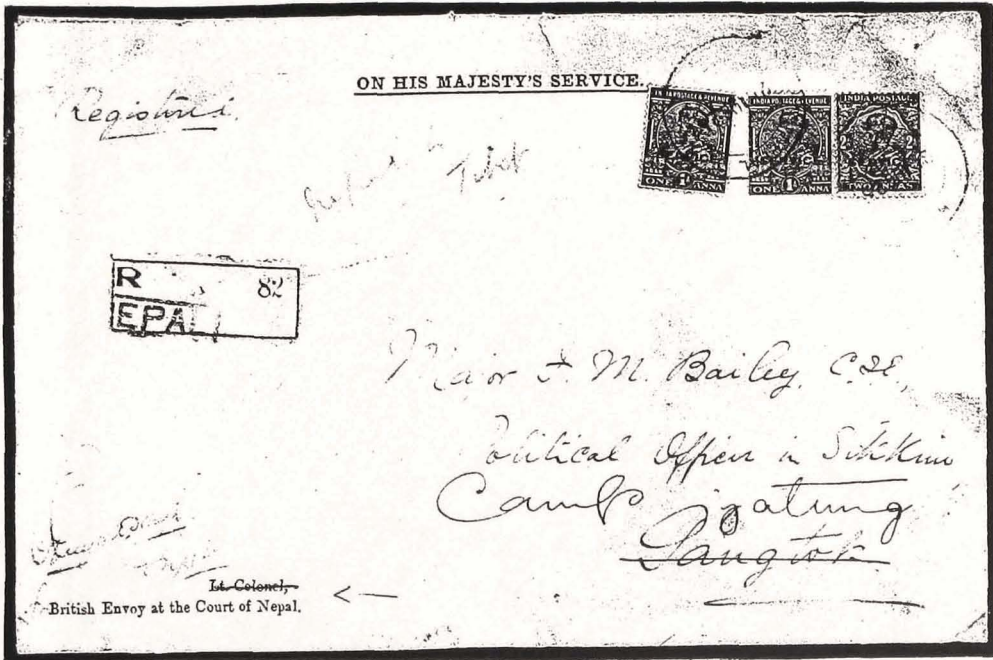 ON HIS MAJESTY'S SERVICE.
Registered
Tibet
INDIA POSTAGE & REVENUE
ONE 1 ANNA
INDIA POSTAGE & REVENUE
ONE 1 ANNA
INDIA POSTAGE
TWO ANNAS
R 82
EPAL
Major F. M. Bailey, C.I.E.,
Political Officer in Sikkim
Camp Yatung
Gangtok
Lt. Colonel,
British Envoy at the Court of Nepal.